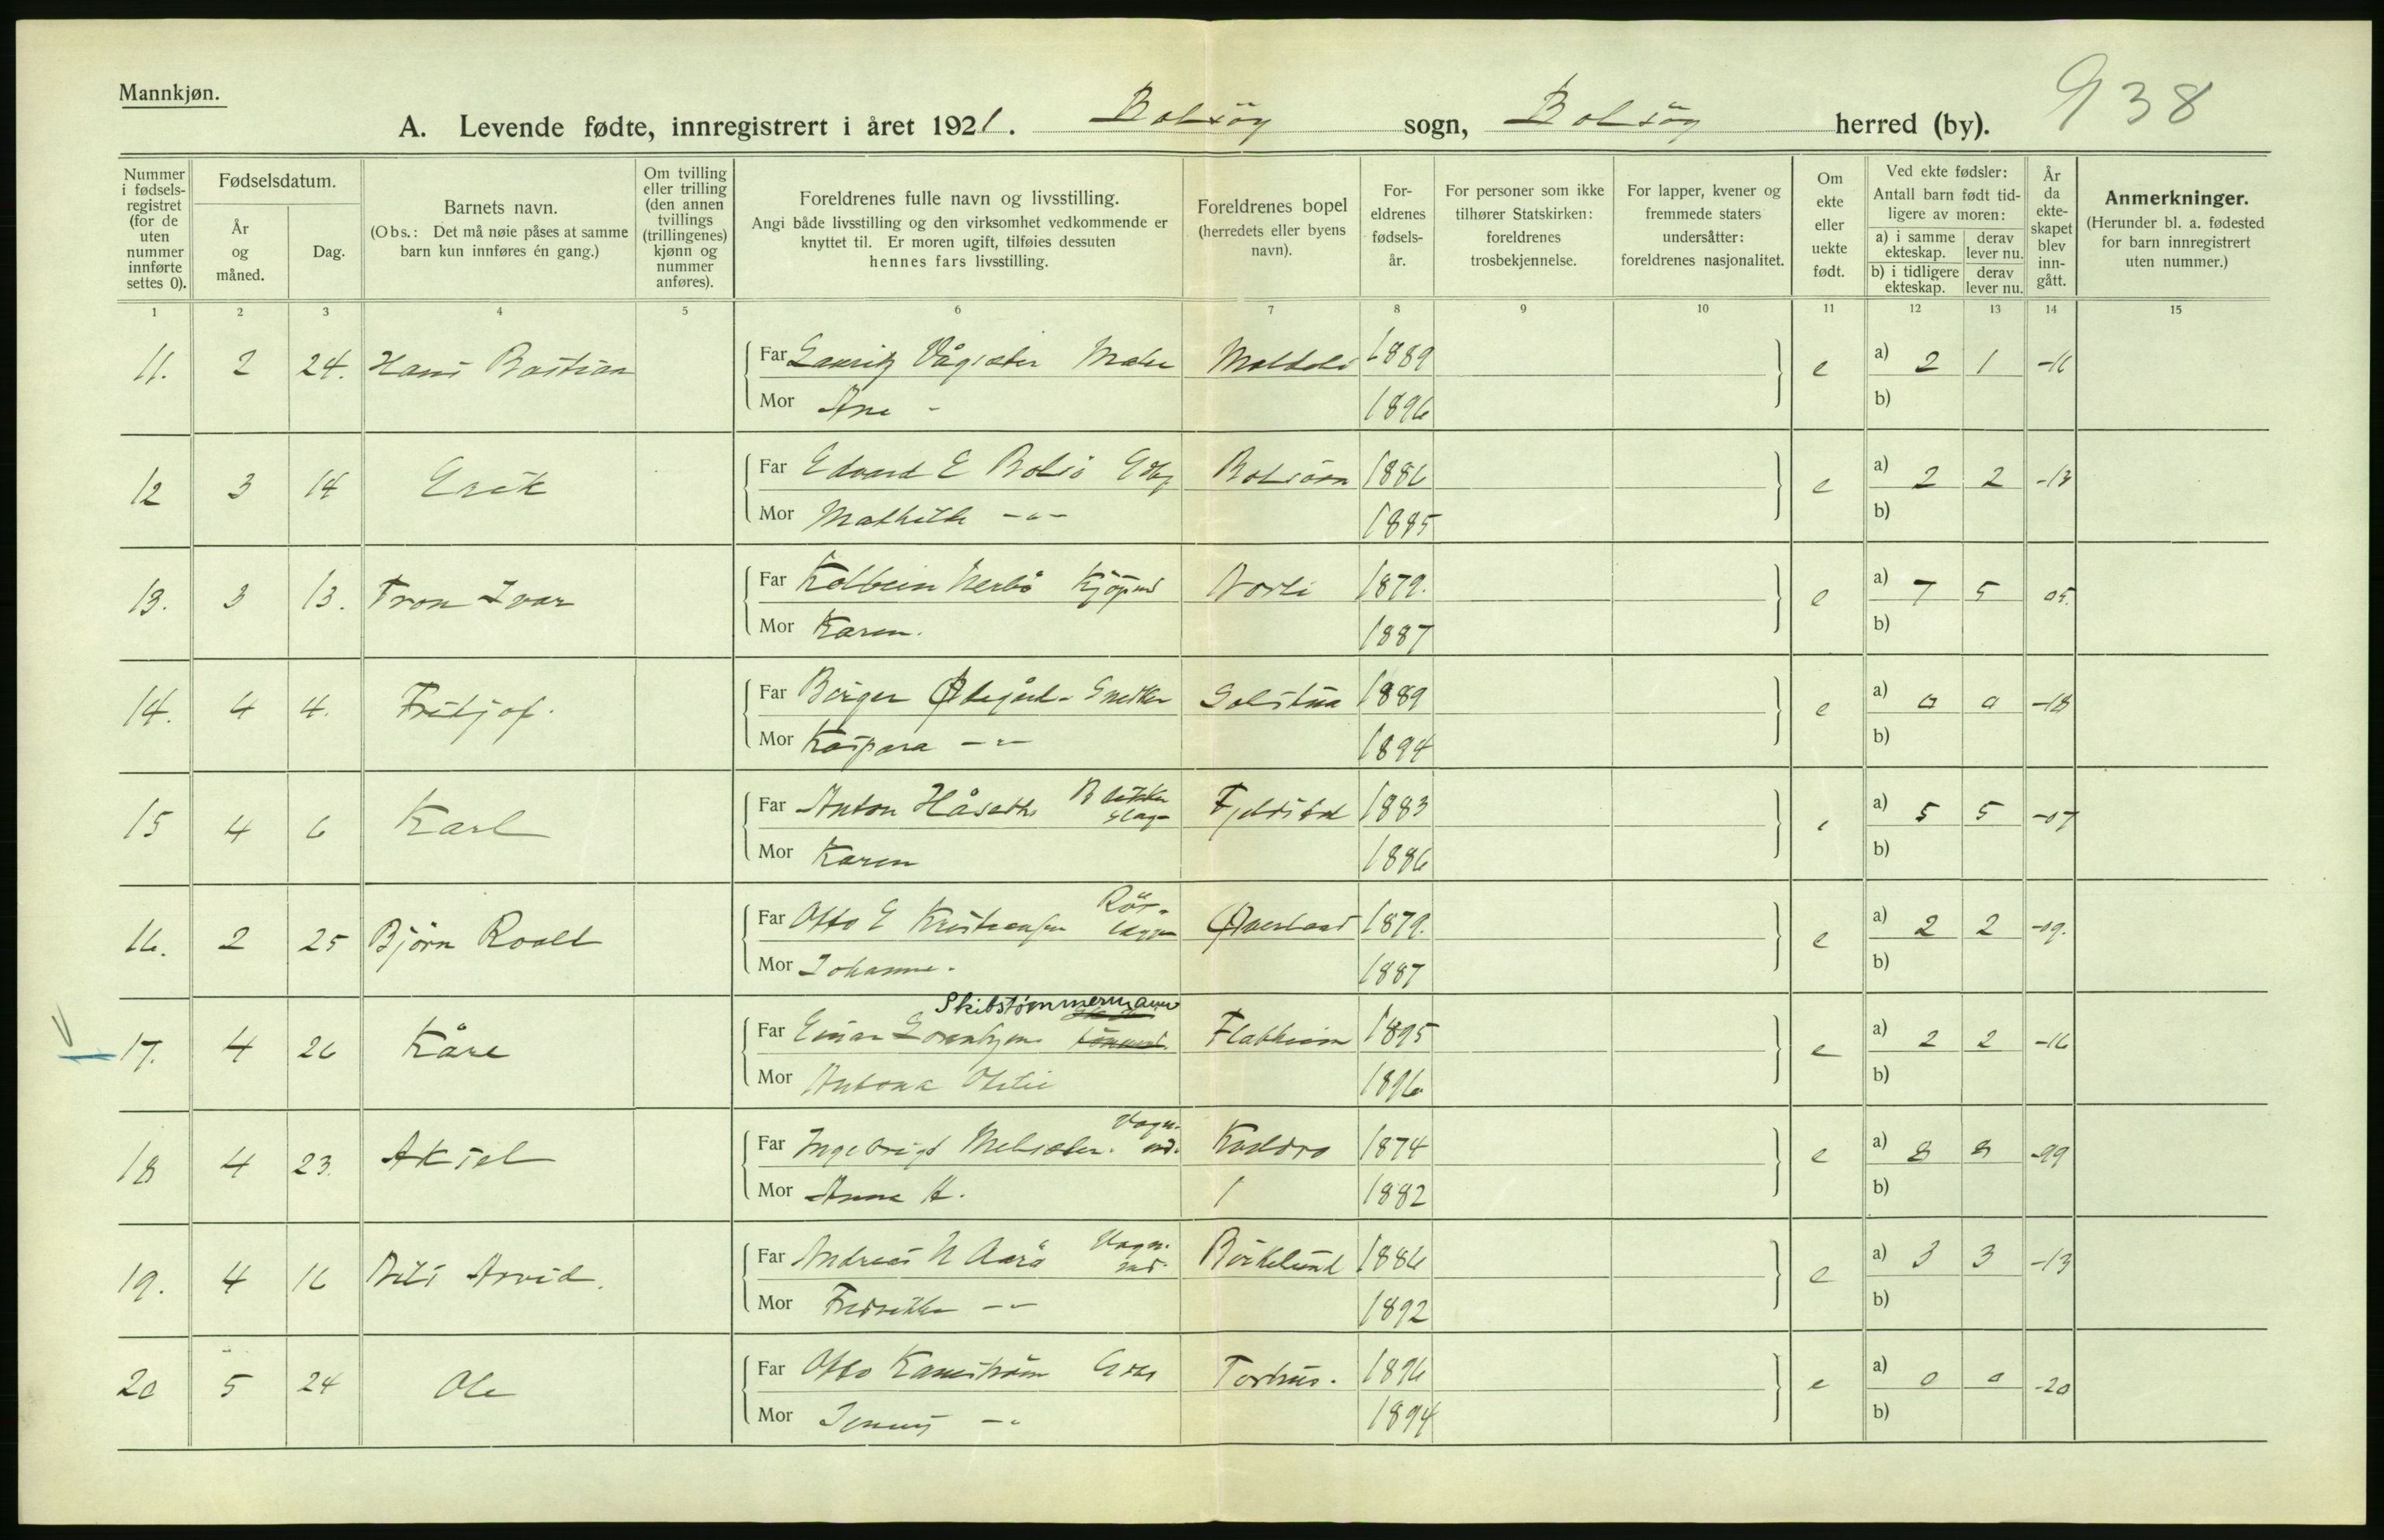 Mannkjøn.
938
A. Levende fødte, innregistrert i året 1921. Bolsöy sogn, Bolsöy herred (by).
Nummer i fødselsregistret (for de uten nummer innførte settes 0).
Fødselsdatum.
År og måned.
Dag.
Barnets navn.
(Obs.: Det må nøie påses at samme barn kun innføres én gang.)
Om tvilling eller trilling (den annen tvillings (trillingenes) kjønn og nummer anføres).
Foreldrenes fulle navn og livsstilling.
Angi både livsstilling og den virksomhet vedkommende er knyttet til. Er moren ugift, tilføies dessuten hennes fars livsstilling.
Foreldrenes bopel (herredets eller byens navn).
Foreldrenes fødselsår.
For personer som ikke tilhører Statskirken: foreldrenes trosbekjennelse.
For lapper, kvener og fremmede staters undersåtter: foreldrenes nasjonalitet.
Om ekte eller uekte født.
Ved ekte fødsler: Antall barn født tidligere av moren:
a) i samme ekteskap. derav lever nu.
b) i tidligere ekteskap. derav lever nu.
År da ekteskapet blev inngått.
Anmerkninger.
(Herunder bl. a. fødested for barn innregistrert uten nummer.)
1 2 3 4 5 6 7 8 9 10 11 12 13 14 15
11. 2 24. Hans Bastian Far Lauritz Vågsæter Maler 1889 e a) 2 1 -16
Mor Ane - 1896 b)
12 3 14 Erik Far Edvard E Bolsö Gbr 1886 e a) 2 2 -13
Mor Mathilde -"- 1885 b)
13. 3 13. Tron Ivar Far Kolbein Nerbö Kjöpmd 1879. e a) 7 5 05.
Mor Karen. 1887 b)
14. 4 4. Fritjof. Far Birger Ødegård - Snekker Solstua 1889 e a) 0 0 -18
Mor Kaspara -"- 1894 b)
15 4 6 Karl Far Anton Håseth Blikkenslag- 1883 a) 5 5 -07
Mor Karen 1886 b)
16. 2 25 Björn Roald Far Otto E Kristiansen Rörlægger Øverland 1879. e a) 2 2 -09.
Mor Johanne. 1887 b)
Skibstömmermann
17. 4 26 Kåre Far Einar Lorentzen Flatheim 1895 e a) 2 2 -16
Mor Antona Otilie 1896 b)
18 4 23. Aksel Far Ingebrigt Melsæter. Vogn- md. 1874 e a) 8 8 -99
Mor Anna H. 1882 b)
19. 4 16 Nils Arvid. Far Andreas N Aarö Vogn- md. Birkelund 1886 e a) 3 3 -13
Mor Fredrikke -"- 1892 b)
20 5 24 Ole Far Otto Kamström Torhus. 1896 e a) 0 0 -20
Mor Jenny -"- 1894 b)